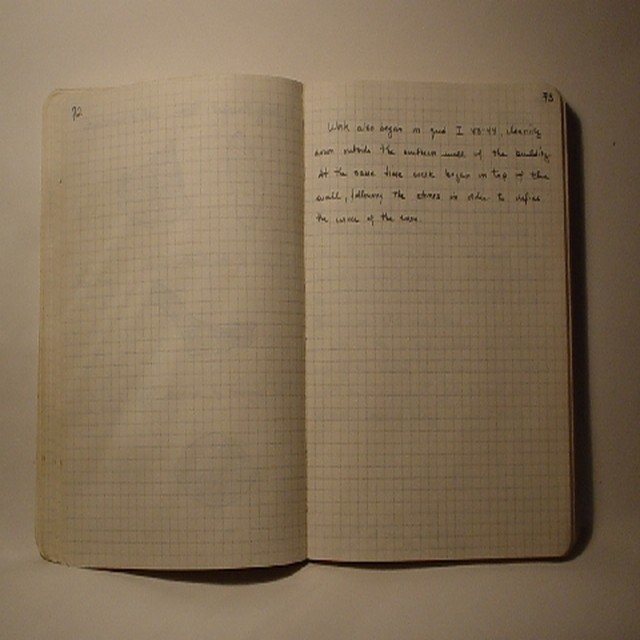 72
73
Work also began in grid I 43-44, cleaning
down outside the southern wall of the building.
At the same time work began on top of the
wall, following the stones in order to define
the of the